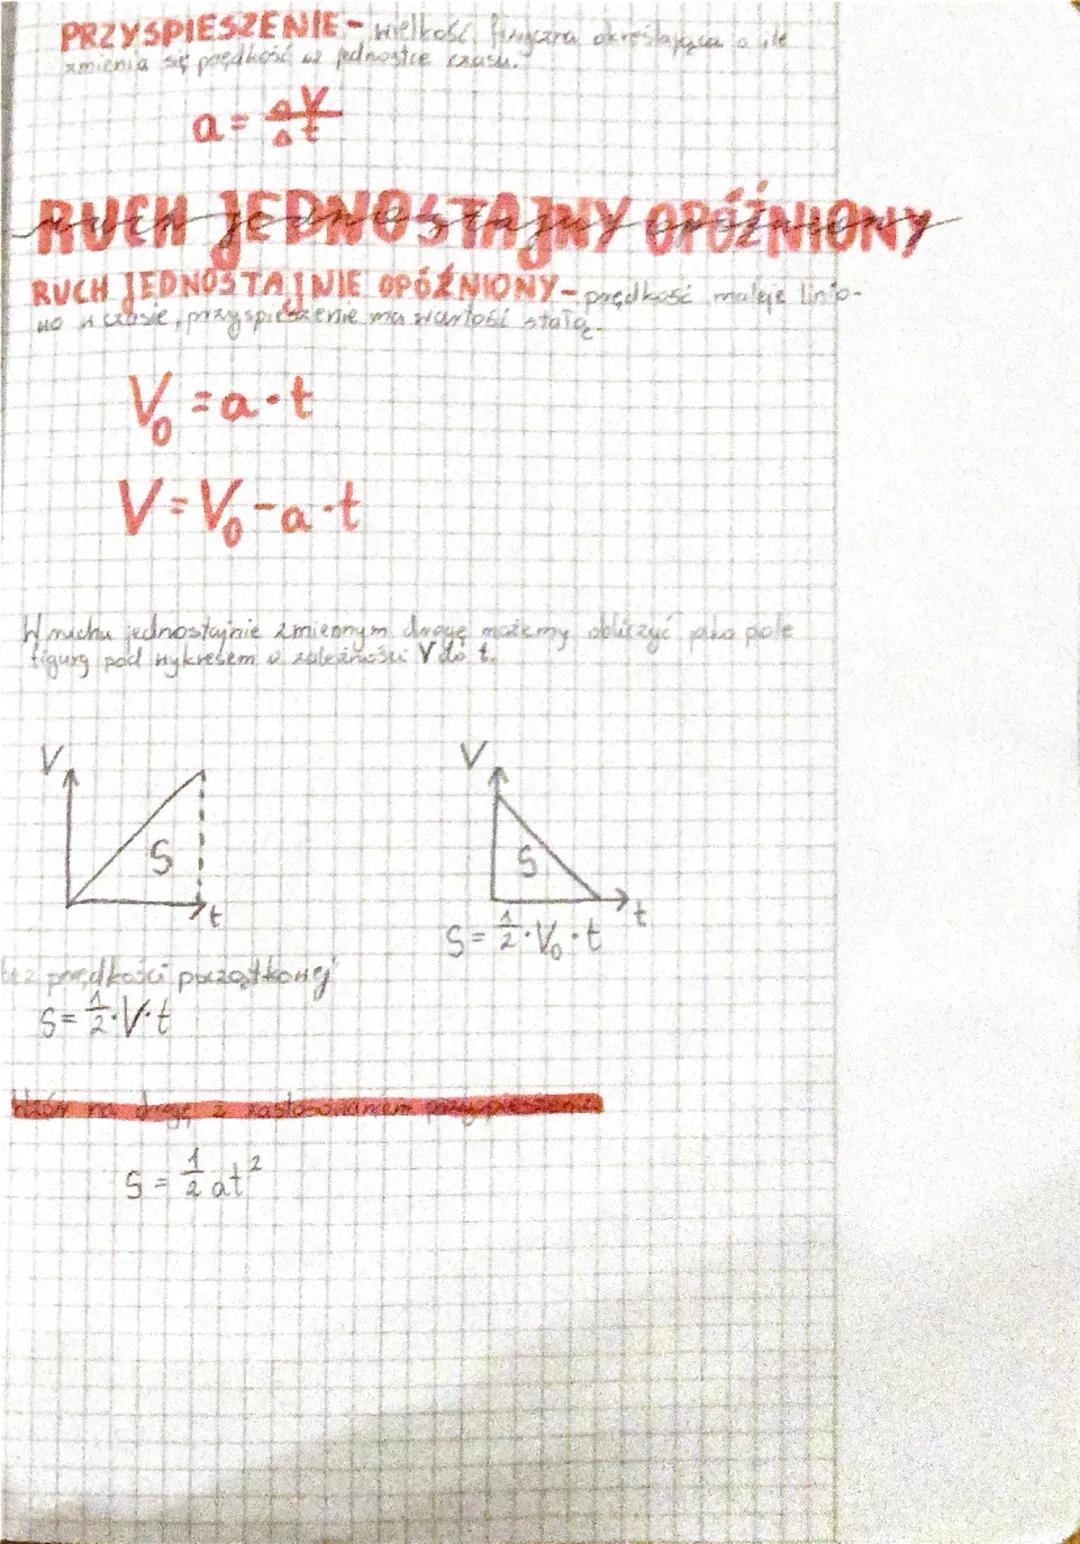 PRZYSPIESZENIE - wielkość fizyczna określająca o ile
zmienia się prędkość w jednostce czasu.
a = ΔV/Δt
RUCH JEDNOSTAJNY OPÓŹNIONY
ruch jednostajny opóźniony
RUCH JEDNOSTAJNIE OPÓŹNIONY - prędkość maleje linio-
wo w czasie, przyspieszenie ma wartość stałą.
V₀ = a · t
V = V₀ - a · t
W ruchu jednostajnie zmiennym drogę możemy obliczyć jako pole
figury pod wykresem v zależności V do t.
V
S
t
V
S
t
S = 1/2 · V₀ · t
bez prędkości początkowej
S = 1/2 · V · t
Wzór na drogę z zastosowaniem przyspieszenia
S = 1/2 at²